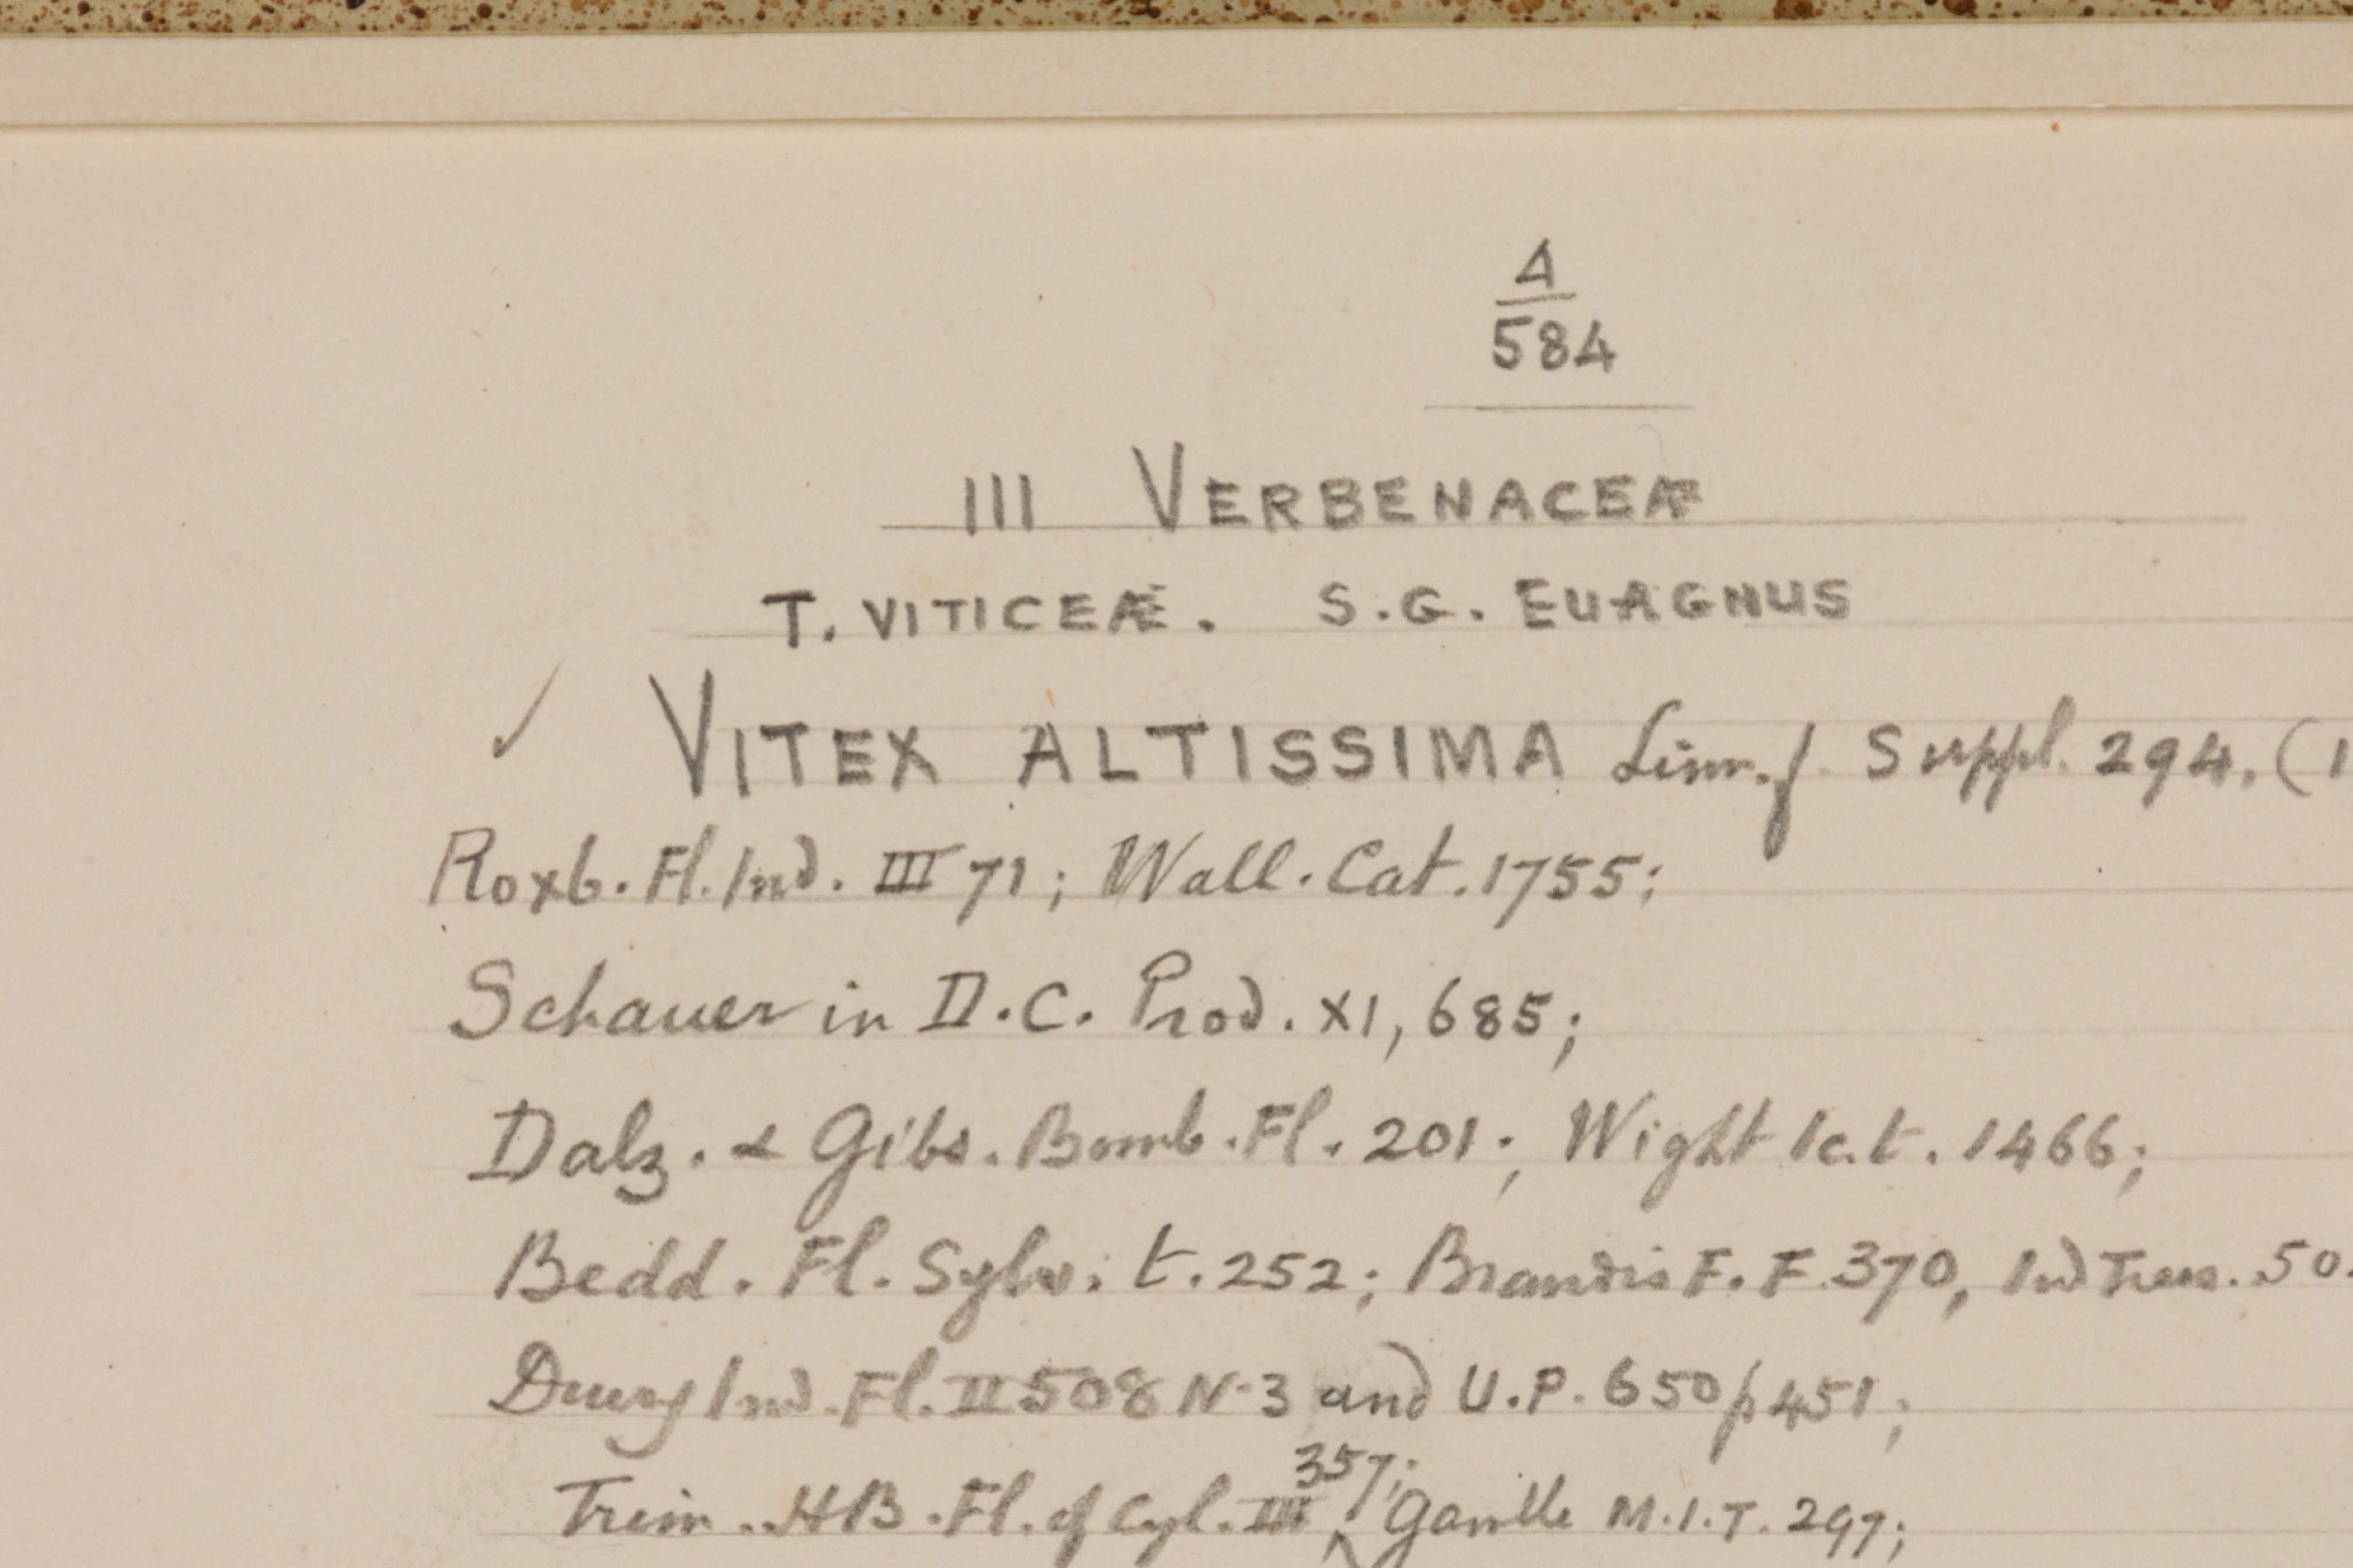 4
584
III VERBENACEÆ
T. VITICEÆ. S.G. EUAGNUS
✓ VITEX ALTISSIMA Linn.f. Suppl. 294. (1
Roxb. Fl. Ind. III 71; Wall. Cat. 1755;
Schauer in D.C. Prod. XI, 685;
Dalz. & Gibs. Bomb. Fl. 201; Wight Ic. t. 1466;
Bedd. Fl. Sylv. t. 252; Brandis F. F. 370, Ind Trees. 50
Drury Ind. Fl. II 508 N-3 and U.P. 650 p 451;
357;
Trim. HB. Fl. of Cyl. III Gamble M.I.T. 297;